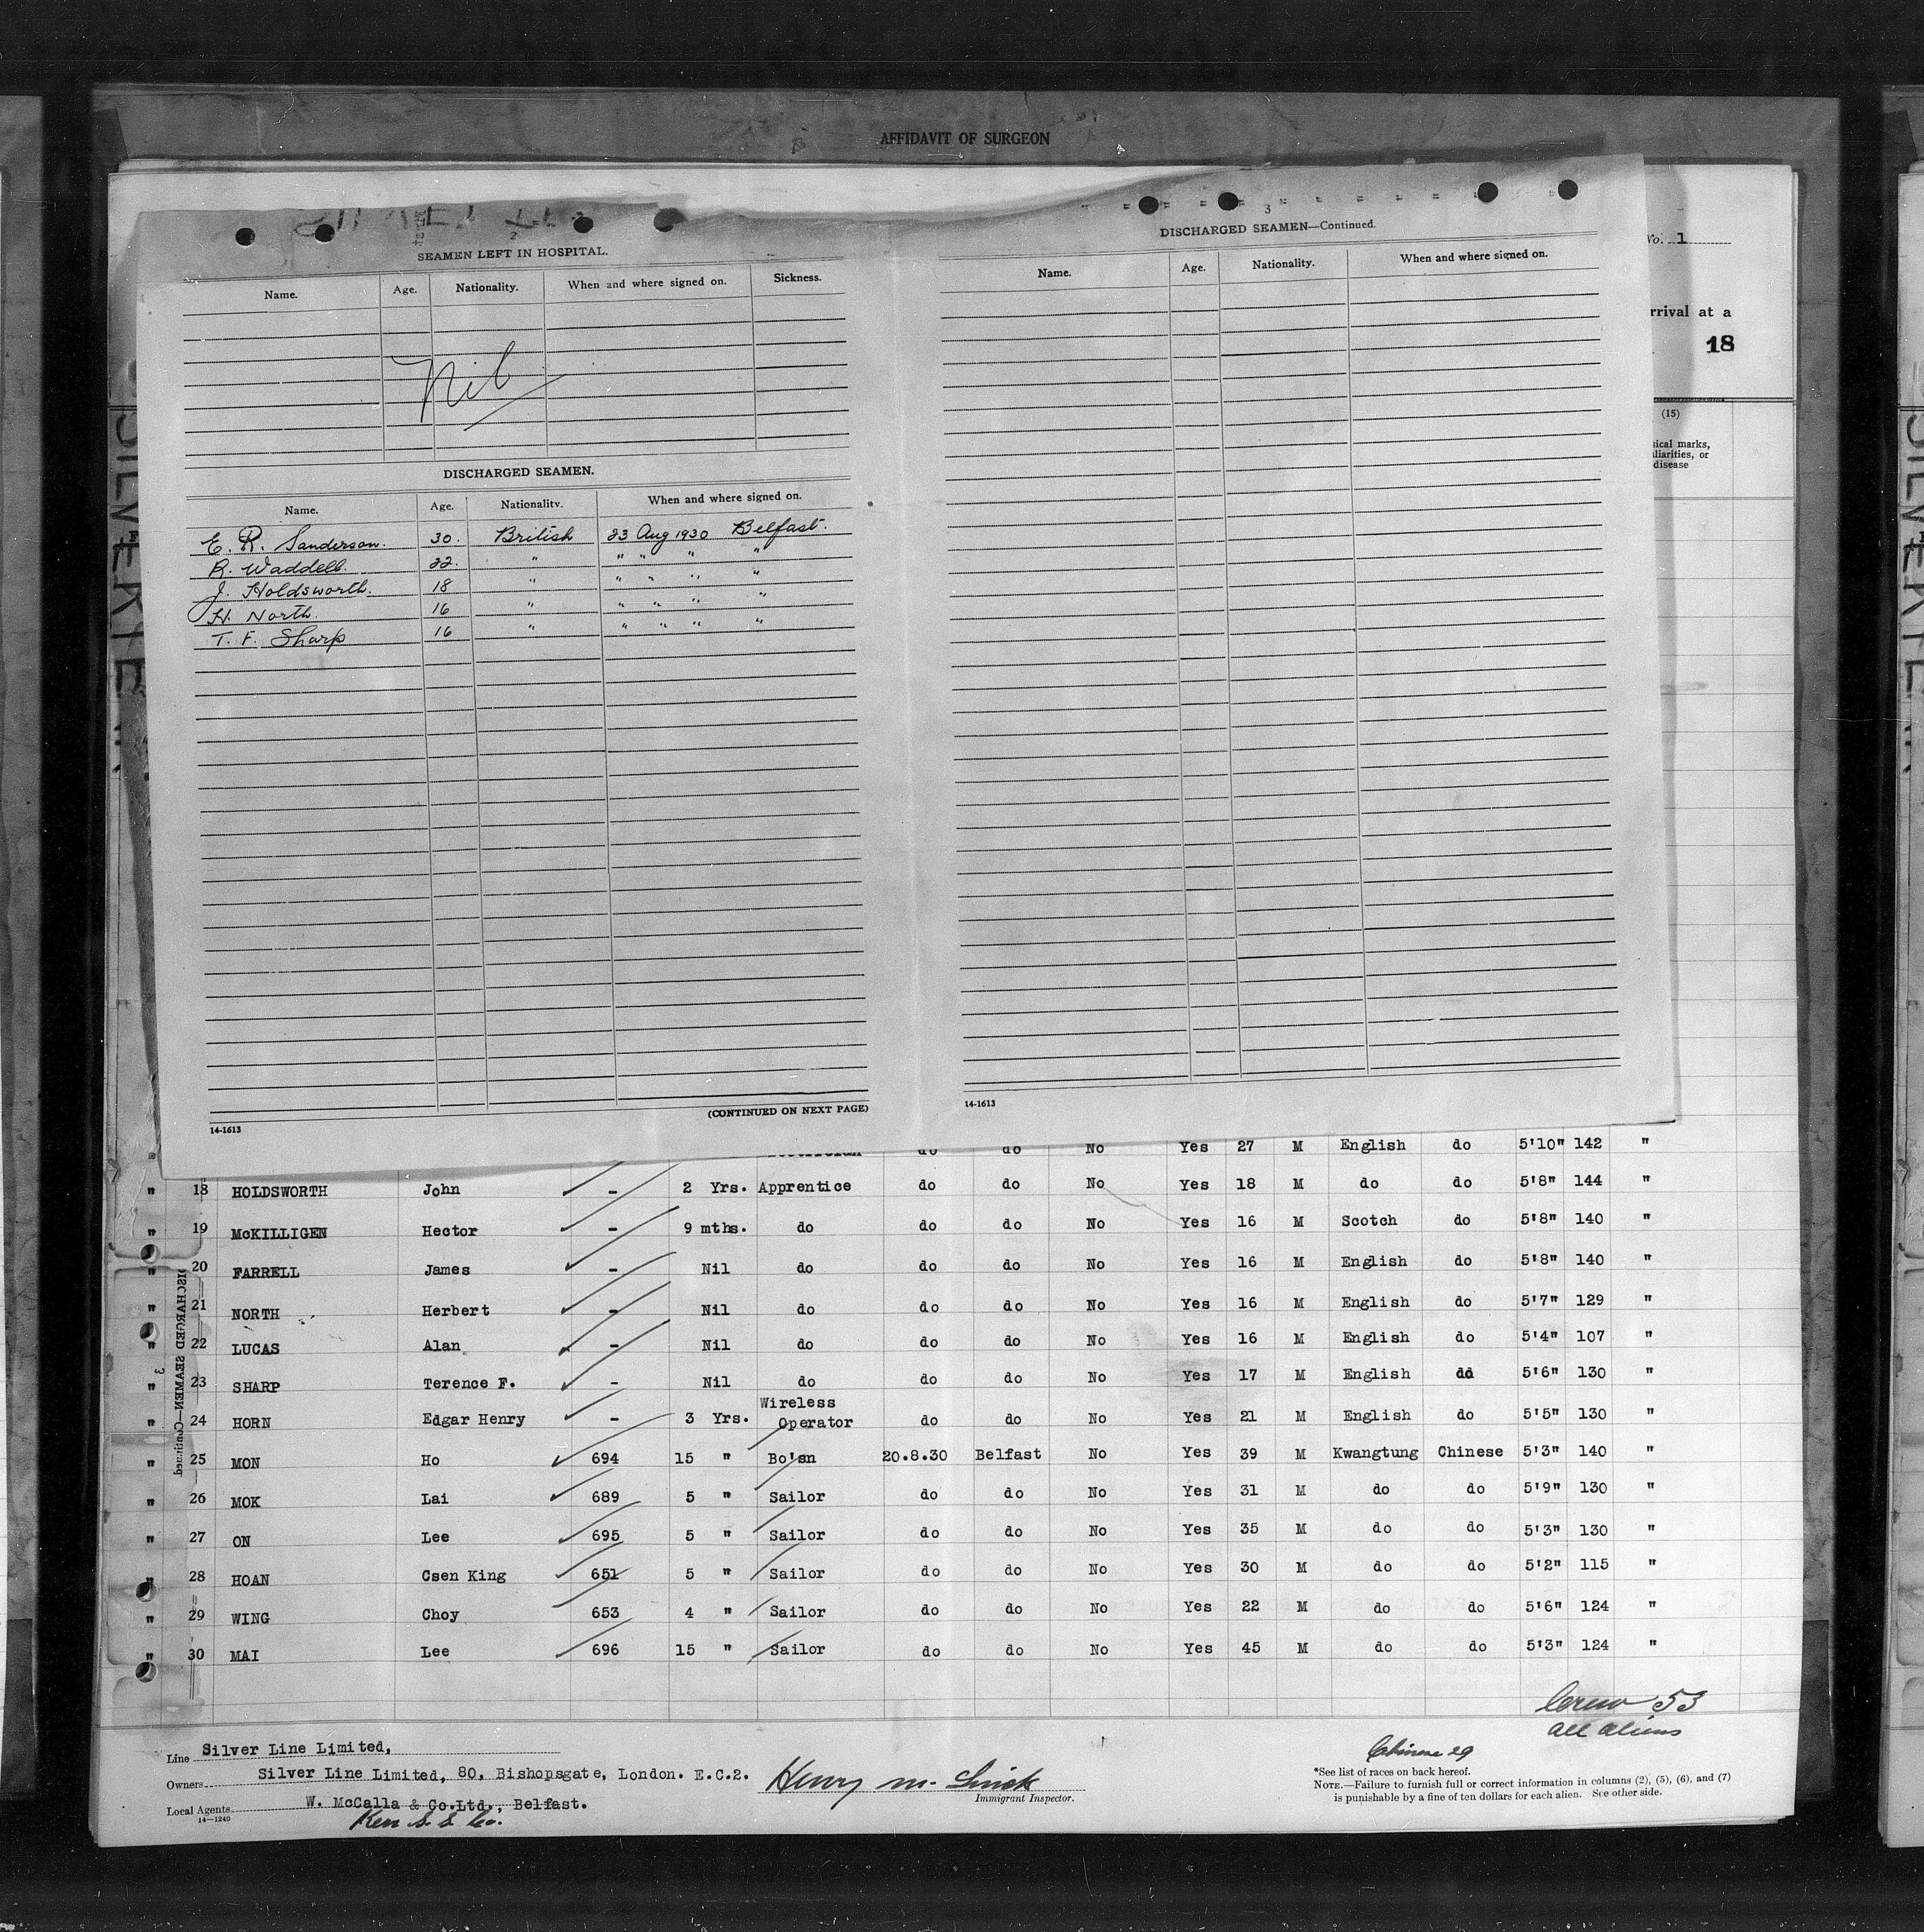 AFFIDAVIT OF SURGEON
No. 1
rrival at a
18
(15)
sical marks,
uliarities, or
disease
2
SEAMEN LEFT IN HOSPITAL.
Name. Age. Nationality. When and where signed on. Sickness.
Nil
DISCHARGED SEAMEN.
Name. Age. Nationality. When and where signed on.
E. R. Sanderson. 30. British 23 Aug 1930 Belfast.
R. Waddell. 22. " " " " "
J. Holdsworth. 18 " " " " "
H. North 16 " " " " "
T. F. Sharp 16 " " " " "
(CONTINUED ON NEXT PAGE)
14-1613
3
DISCHARGED SEAMEN—Continued.
Name. Age. Nationality. When and where signed on.
14-1613
do do No Yes 27 M English do 5'10" 142 "
" 18 HOLDSWORTH John - 2 Yrs. Apprentice do do No Yes 18 M do do 5'8" 144 "
" 19 McKILLIGEN Hector - 9 mths. do do do No Yes 16 M Scotch do 5'8" 140 "
" 20 FARRELL James - Nil do do do No Yes 16 M English do 5'8" 140 "
" 21 NORTH Herbert - Nil do do do No Yes 16 M English do 5'7" 129 "
" 22 LUCAS Alan - Nil do do do No Yes 16 M English do 5'4" 107 "
" 23 SHARP Terence F. - Nil do do do No Yes 17 M English dd 5'6" 130 "
" 24 HORN Edgar Henry - 3 Yrs. Wireless Operator do do No Yes 21 M English do 5'5" 130 "
" 25 MON Ho 694 15 " Bo'sn 20.8.30 Belfast No Yes 39 M Kwangtung Chinese 5'3" 140 "
" 26 MOK Lai 689 5 " Sailor do do No Yes 31 M do do 5'9" 130 "
" 27 ON Lee 695 5 " Sailor do do No Yes 35 M do do 5'3" 130 "
" 28 HOAN Csen King 651 5 " Sailor do do No Yes 30 M do do 5'2" 115 "
" 29 WING Choy 653 4 " Sailor do do No Yes 22 M do do 5'6" 124 "
" 30 MAI Lee 696 15 " Sailor do do No Yes 45 M do do 5'3" 124 "
DISCHARGED SEAMEN—Continued
3
Crew 53
all aliens
Chinese 29
Line Silver Line Limited,
Owners Silver Line Limited, 80, Bishopsgate, London. E.C.2.
Local Agents W. McCalla & Co.Ltd., Belfast.
14—1240
Kerr S. S. Co.
Henry M.
Immigrant Inspector.
*See list of races on back hereof.
NOTE.—Failure to furnish full or correct information in columns (2), (5), (6), and (7)
is punishable by a fine of ten dollars for each alien. See other side.